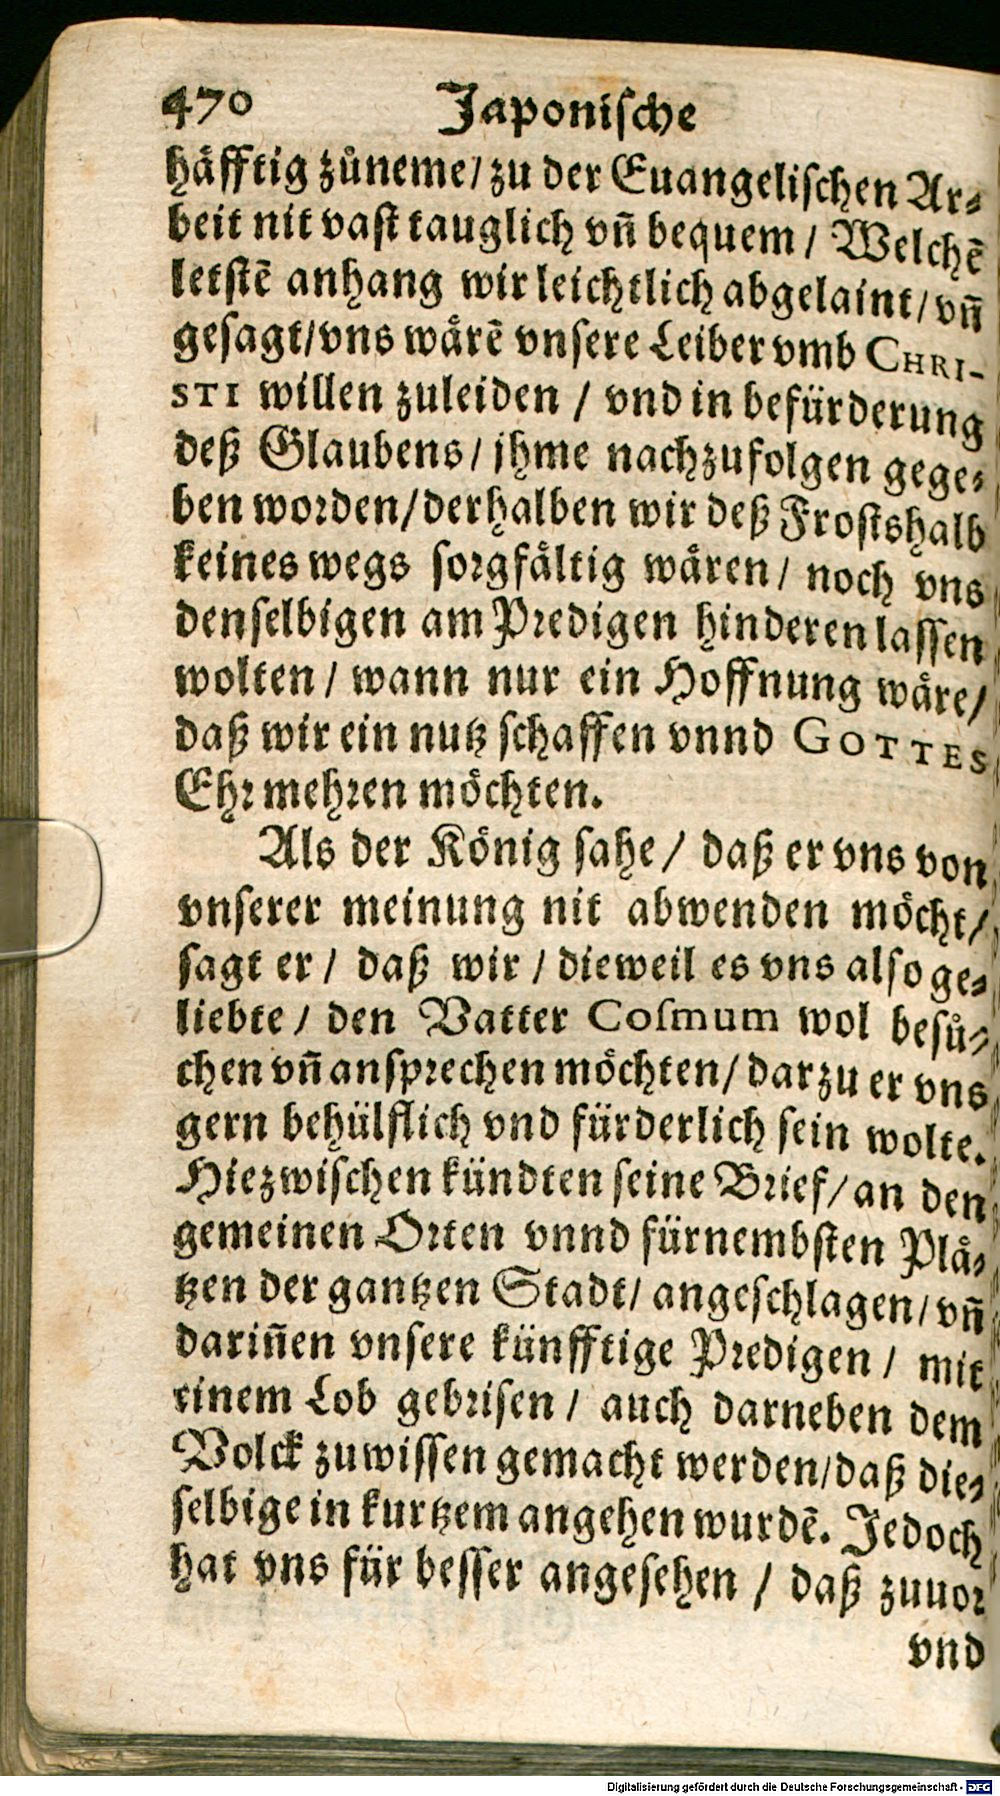 470 Japoniſche
häfftig zůneme/ zu der Euangeliſchen Ar⸗
beit nit vaſt tauglich vñ bequem/ Welchẽ
letſtẽ anhang wir leichtlich abgelaint/ vñ
geſagt/ vns wårẽ vnſere Leiber vmb CHRI-
STI willen zuleiden / vnd in befürderung
deß Glaubens/ jhme nachzufolgen gege⸗
ben worden/ derhalben wir deß Froſtshalb
keines wegs ſorgfåltig wåren/ noch vns
denſelbigen am Predigen hinderen laſſen
wolten/ wann nur ein Hoffnung wåre/
daß wir ein nutz ſchaffen vnnd GOTTES
Ehr mehren möchten.
Als der König ſahe/ daß er vns von
vnſerer meinung nit abwenden möcht/
ſagt er/ daß wir/ dieweil es vns alſo ge⸗
liebte/ den Vatter Coſmum wol beſů⸗
chen vñ anſprechen möchten/ darzu er vns
gern behülflich vnd fürderlich ſein wolte.
Hiezwiſchen kündten ſeine Brief/ an den
gemeinen Orten vnnd fürnembſten Plå⸗
tzen der gantzen Stadt/ angeſchlagen/ vñ
dariñen vnſere künfftige Predigen/ mit
einem Lob gebriſen/ auch darneben dem
Volck zuwiſſen gemacht werden/ daß die⸗
ſelbige in kurtzem angehen wurdẽ. Jedoch
hat vns für beſſer angeſehen / daß zuuor
vnd
Digitalisierung gefördert durch die Deutsche Forschungsgemeinschaft - DFG